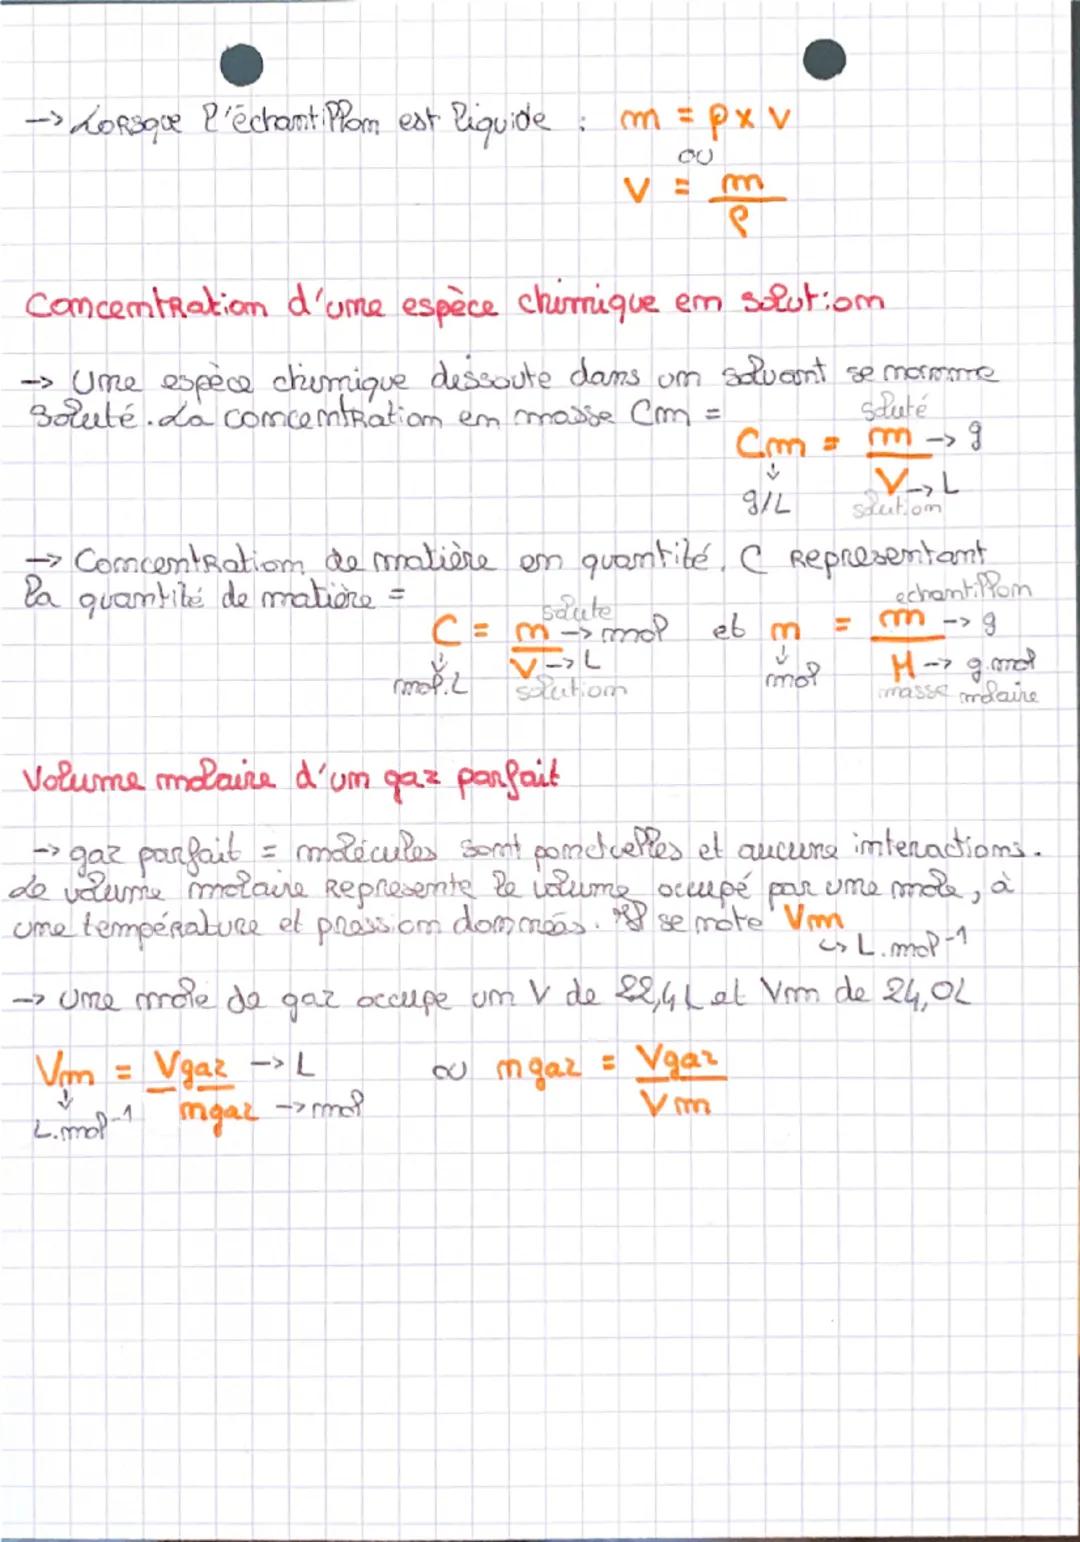 -> Lorsque l'échantillon est liquide : m = ρ x V
ou
V = m/ρ
Concentration d'une espèce chimique en solution
-> Une espèce chimique dessoute dans un solvant se nomme
soluté. La concentration en masse Cm =
soluté
Cm = m -> g
V -> L
g/L solution
-> Concentration de matière en quantité, C représentant
la quantité de matière =
soluté échantillon
C = n -> mol et n = m -> g
V -> L M -> g.mol
mol.L solution mol masse molaire
Volume molaire d'un gaz parfait
-> gaz parfait = molécules sont ponctuelles et aucune interactions.
Le volume molaire représente le volume occupé par une mole, à
une température et pression données. Il se note Vm
↳ L.mol-1
-> Une mole de gaz occupe un V de 22,4L et Vm de 24,0L
Vm = Vgaz -> L ou ngaz = Vgaz
ngaz -> mol Vm
L.mol-1